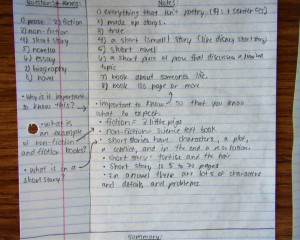 Questions/Terms:
Notes:
1) prose
2) fiction
2) non-fiction
4) short story
5) novella
6) essay
7) biography
8) novel
1) everything that isn't poetry
2) made up storys.
3) true
4) a short (small) story (like disney short story)
5) short novel
6) a short piece of prose that discusses a
topic
7) book about someones life.
8) book 150 page or more
• Why is it important
to know this?
• important to know so that you know
what to expect.
• what is
an example
of non-fiction
and fiction books?
• fiction = 3 little pigs
• non-fiction = science text book
• short stories have characters, a plot,
a conflict, and in the end a resolution
• short story = tortoise and the hair
• what is in a
short story?
• short story, 5 to 30 pages
• in a novel there are lots of characters
and details, and problems
Summary: